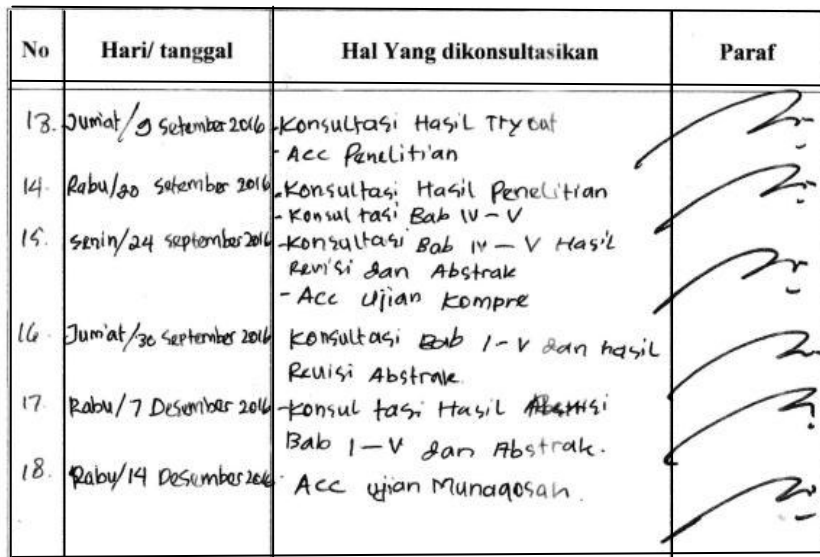 No Hari/ tanggal Hal Yang dikonsultasikan Paraf
13. Jum'at/9 Setember 2016 -Konsultasi Hasil Tryout
- Acc Penelitian
14. Rabu/20 setember 2016 -Konsultasi Hasil Penelitian
- Konsultasi Bab IV - V
15. Senin/24 september 2016 -Konsultasi Bab IV - V Hasil
Revisi dan Abstrak
- Acc Ujian Kompre
16. Jum'at/30 September 2016 Konsultasi Bab I - V dan hasil
Revisi Abstrak.
17. Rabu/7 Desember 2016 -Konsultasi Hasil
Bab I - V dan Abstrak.
18. Rabu/14 Desember 2016 Acc ujian Munaqosah.